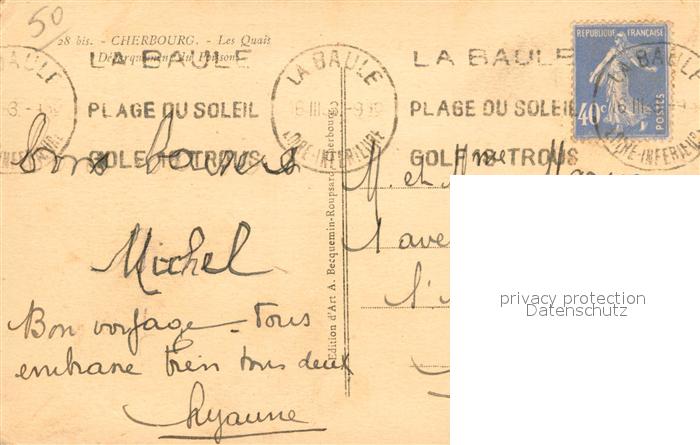 50
28 bis. - CHERBOURG. - Les Quais
Débarquement du Poisson
LA BAULE
PLAGE DU SOLEIL
GOLF 18 TROUS
LA BAULE
LOIRE-INFERIEURE
LA BAULE
PLAGE DU SOLEIL
GOLF 18 TROUS
REPUBLIQUE FRANÇAISE
40c
POSTES
LA BAULE
LOIRE-INFERIEURE
Bons baisers
Michel
Bon voyage - Tous
embrasse bien tous deux
Edition d'Art A. Becquemin-Roupsard, Cherbourg
M. et Mme
1 ave
privacy protection
Datenschutz